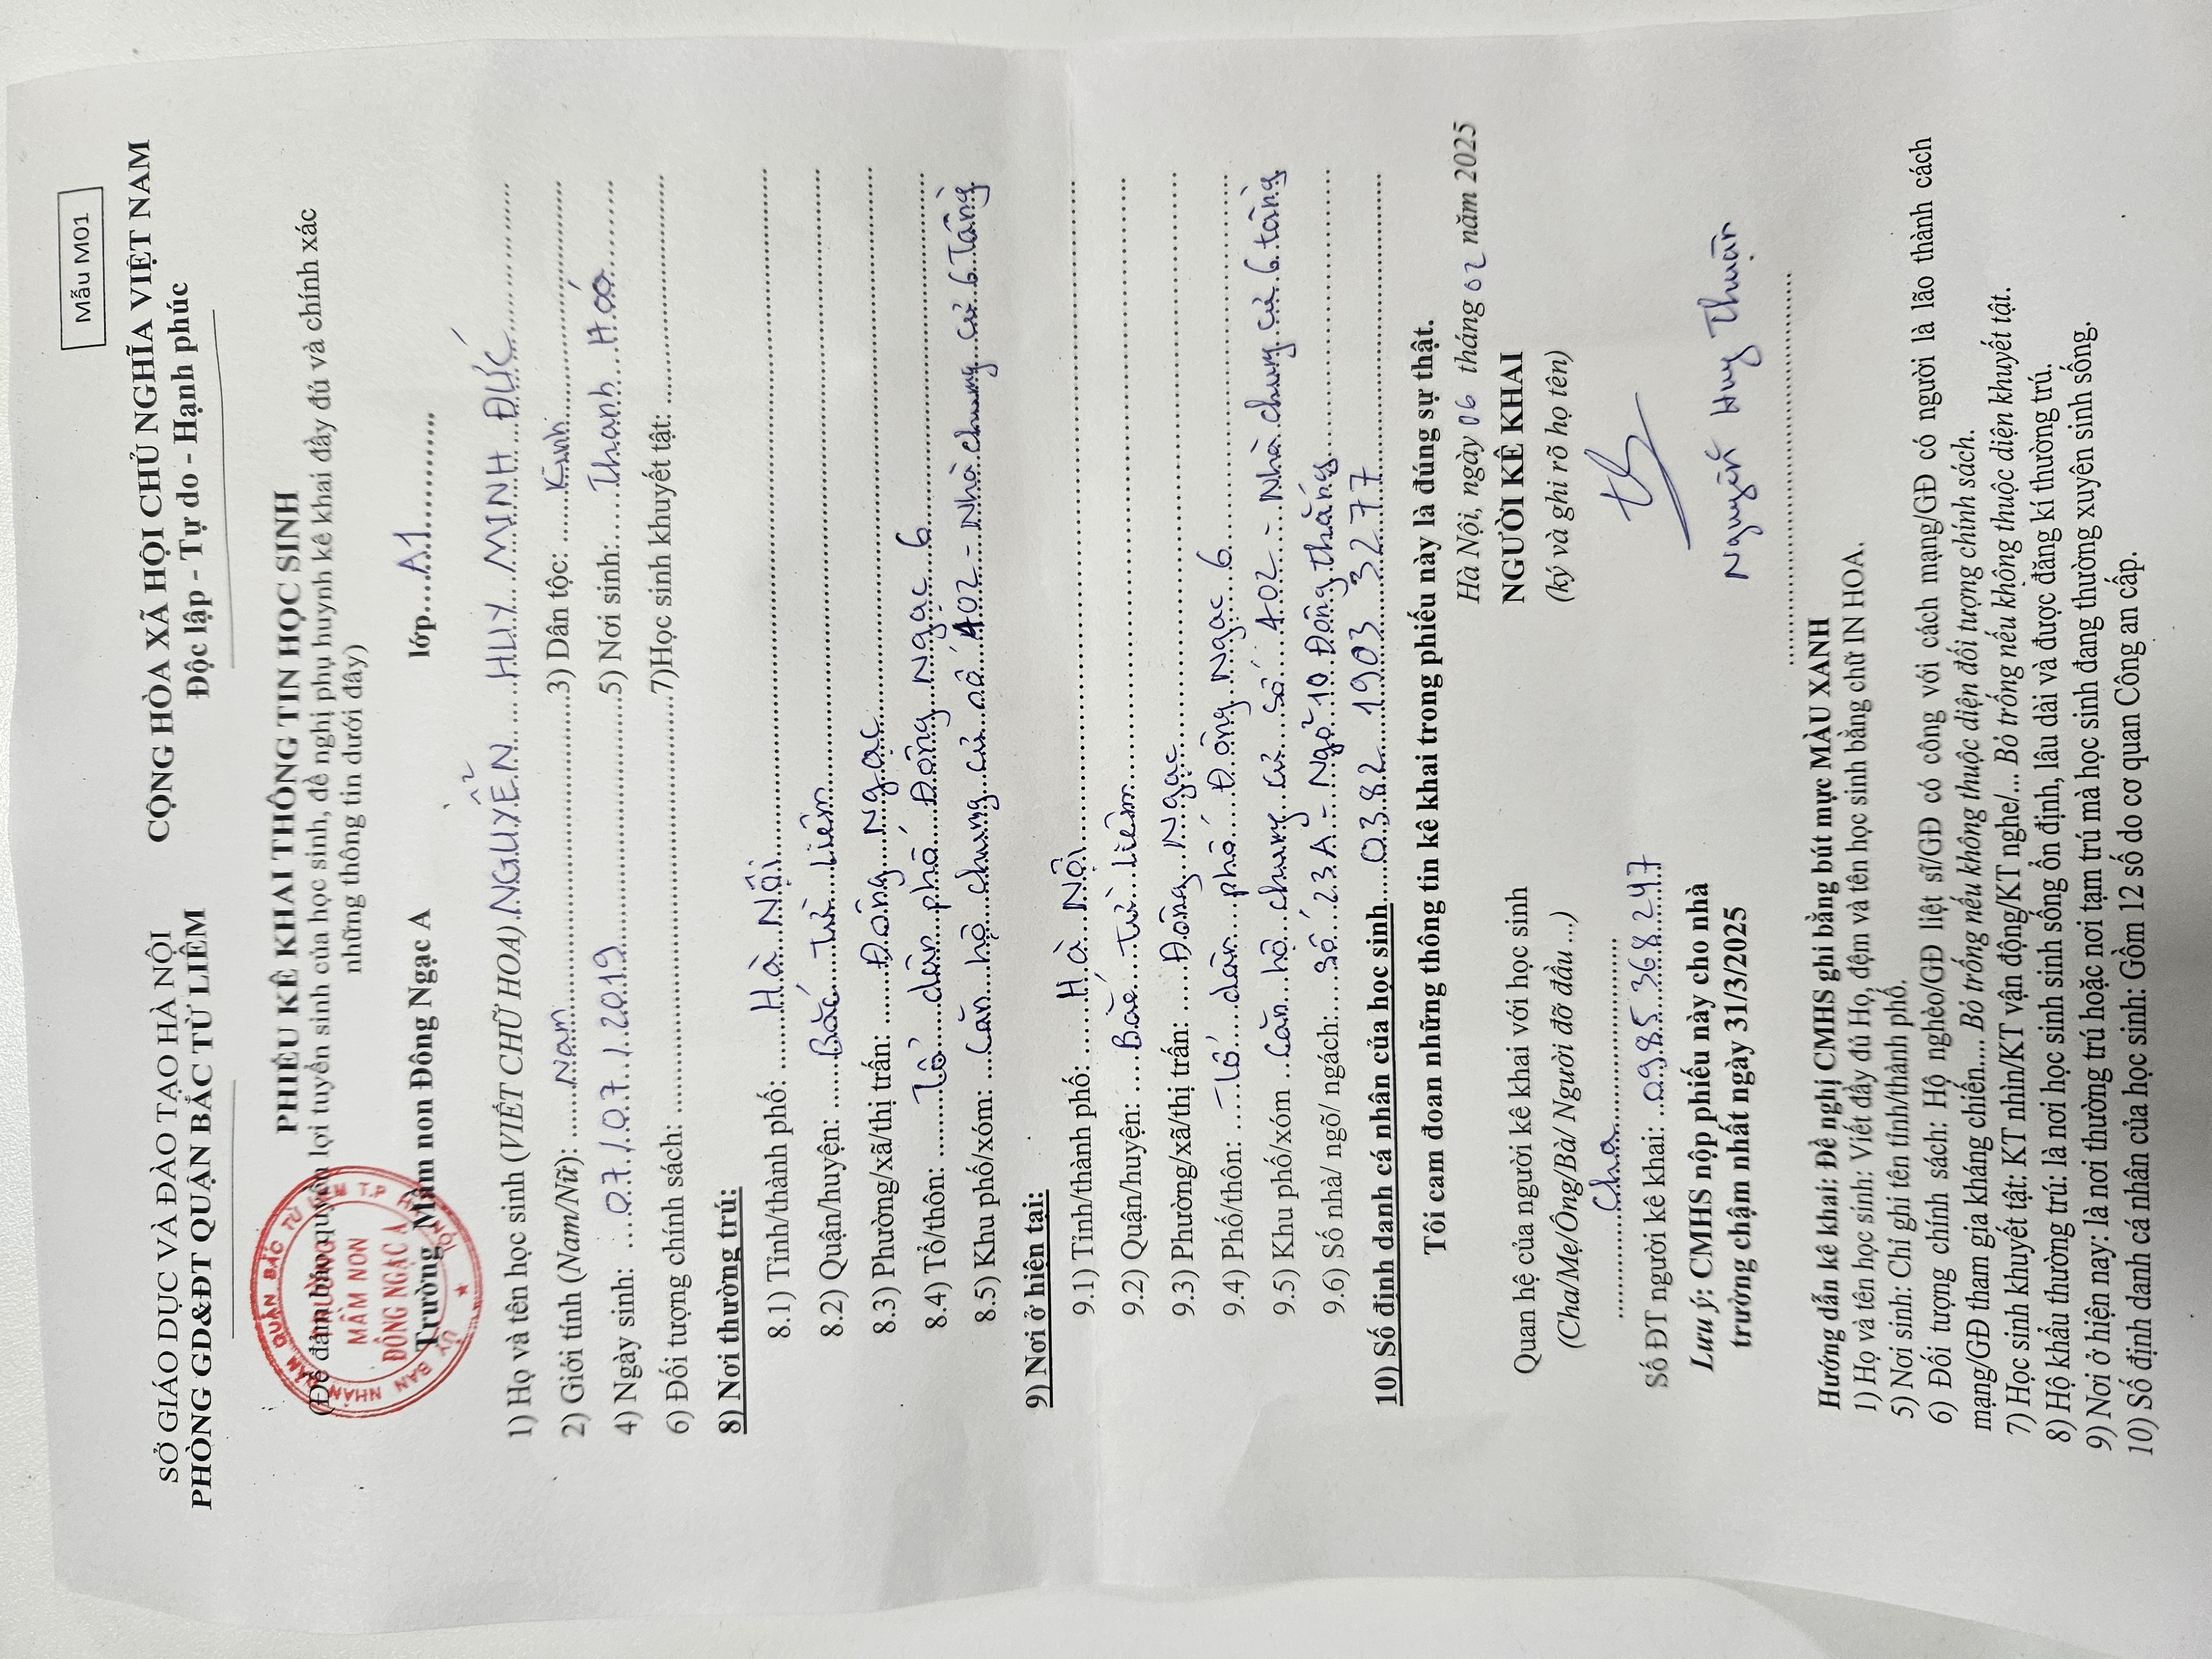 Mẫu M01
SỞ GIÁO DỤC VÀ ĐÀO TẠO HÀ NỘI
PHÒNG GD&ĐT QUẬN BẮC TỪ LIÊM
CỘNG HÒA XÃ HỘI CHỦ NGHĨA VIỆT NAM
Độc lập - Tự do - Hạnh phúc
ỦY BAN NHÂN DÂN QUẬN BẮC TỪ LIÊM T.P HÀ NỘI
TRƯỜNG
MẦM NON
ĐÔNG NGẠC A
PHIẾU KÊ KHAI THÔNG TIN HỌC SINH
(Để đảm bảo quyền lợi tuyển sinh của học sinh, đề nghị phụ huynh kê khai đầy đủ và chính xác
những thông tin dưới đây)
Trường Mầm non Đông Ngạc A lớp....A1............
1) Họ và tên học sinh (VIẾT CHỮ HOA) NGUYỄN HUY MINH ĐỨC
2) Giới tính (Nam/Nữ): Nam 3) Dân tộc: Kinh
4) Ngày sinh: 07/07/2019 5) Nơi sinh: Thanh Hoá
6) Đối tượng chính sách: 7)Học sinh khuyết tật:
8) Nơi thường trú:
8.1) Tỉnh/thành phố: Hà Nội
8.2) Quận/huyện: Bắc Từ Liêm
8.3) Phường/xã/thị trấn: Đông Ngạc
8.4) Tổ/thôn: Tổ dân phố Đông Ngạc 6
8.5) Khu phố/xóm: Căn hộ chung cư số 402 - Nhà chung cư 6 tầng
9) Nơi ở hiện tại:
9.1) Tỉnh/thành phố: Hà Nội
9.2) Quận/huyện: Bắc Từ Liêm
9.3) Phường/xã/thị trấn: Đông Ngạc
9.4) Phố/thôn: Tổ dân phố Đông Ngạc 6
9.5) Khu phố/xóm Căn hộ chung cư số 402 - Nhà chung cư 6 tầng
9.6) Số nhà/ ngõ/ ngách: Số 23A - Ngõ 10 Đông Thắng
10) Số định danh cá nhân của học sinh 0382 1903 3277
Tôi cam đoan những thông tin kê khai trong phiếu này là đúng sự thật.
Hà Nội, ngày 06 tháng 02 năm 2025
Quan hệ của người kê khai với học sinh
(Cha/Mẹ/Ông/Bà/ Người đỡ đầu ...)
Cha
Số ĐT người kê khai: 0985 368 247
Lưu ý: CMHS nộp phiếu này cho nhà
trường chậm nhất ngày 31/3/2025
NGƯỜI KÊ KHAI
(ký và ghi rõ họ tên)
Nguyễn Huy Thuận
Hướng dẫn kê khai: Đề nghị CMHS ghi bằng bút mực MÀU XANH
1) Họ và tên học sinh: Viết đầy đủ Họ, đệm và tên học sinh bằng chữ IN HOA.
5) Nơi sinh: Chỉ ghi tên tỉnh/thành phố.
6) Đối tượng chính sách: Hộ nghèo/GĐ liệt sĩ/GĐ có công với cách mạng/GĐ có người là lão thành cách
mạng/GĐ tham gia kháng chiến.... Bỏ trống nếu không thuộc diện đối tượng chính sách.
7) Học sinh khuyết tật: KT nhìn/KT vận động/KT nghe/... Bỏ trống nếu không thuộc diện khuyết tật.
8) Hộ khẩu thường trú: là nơi học sinh sinh sống ổn định, lâu dài và được đăng kí thường trú.
9) Nơi ở hiện nay: là nơi thường trú hoặc nơi tạm trú mà học sinh đang thường xuyên sinh sống.
10) Số định danh cá nhân của học sinh: Gồm 12 số do cơ quan Công an cấp.